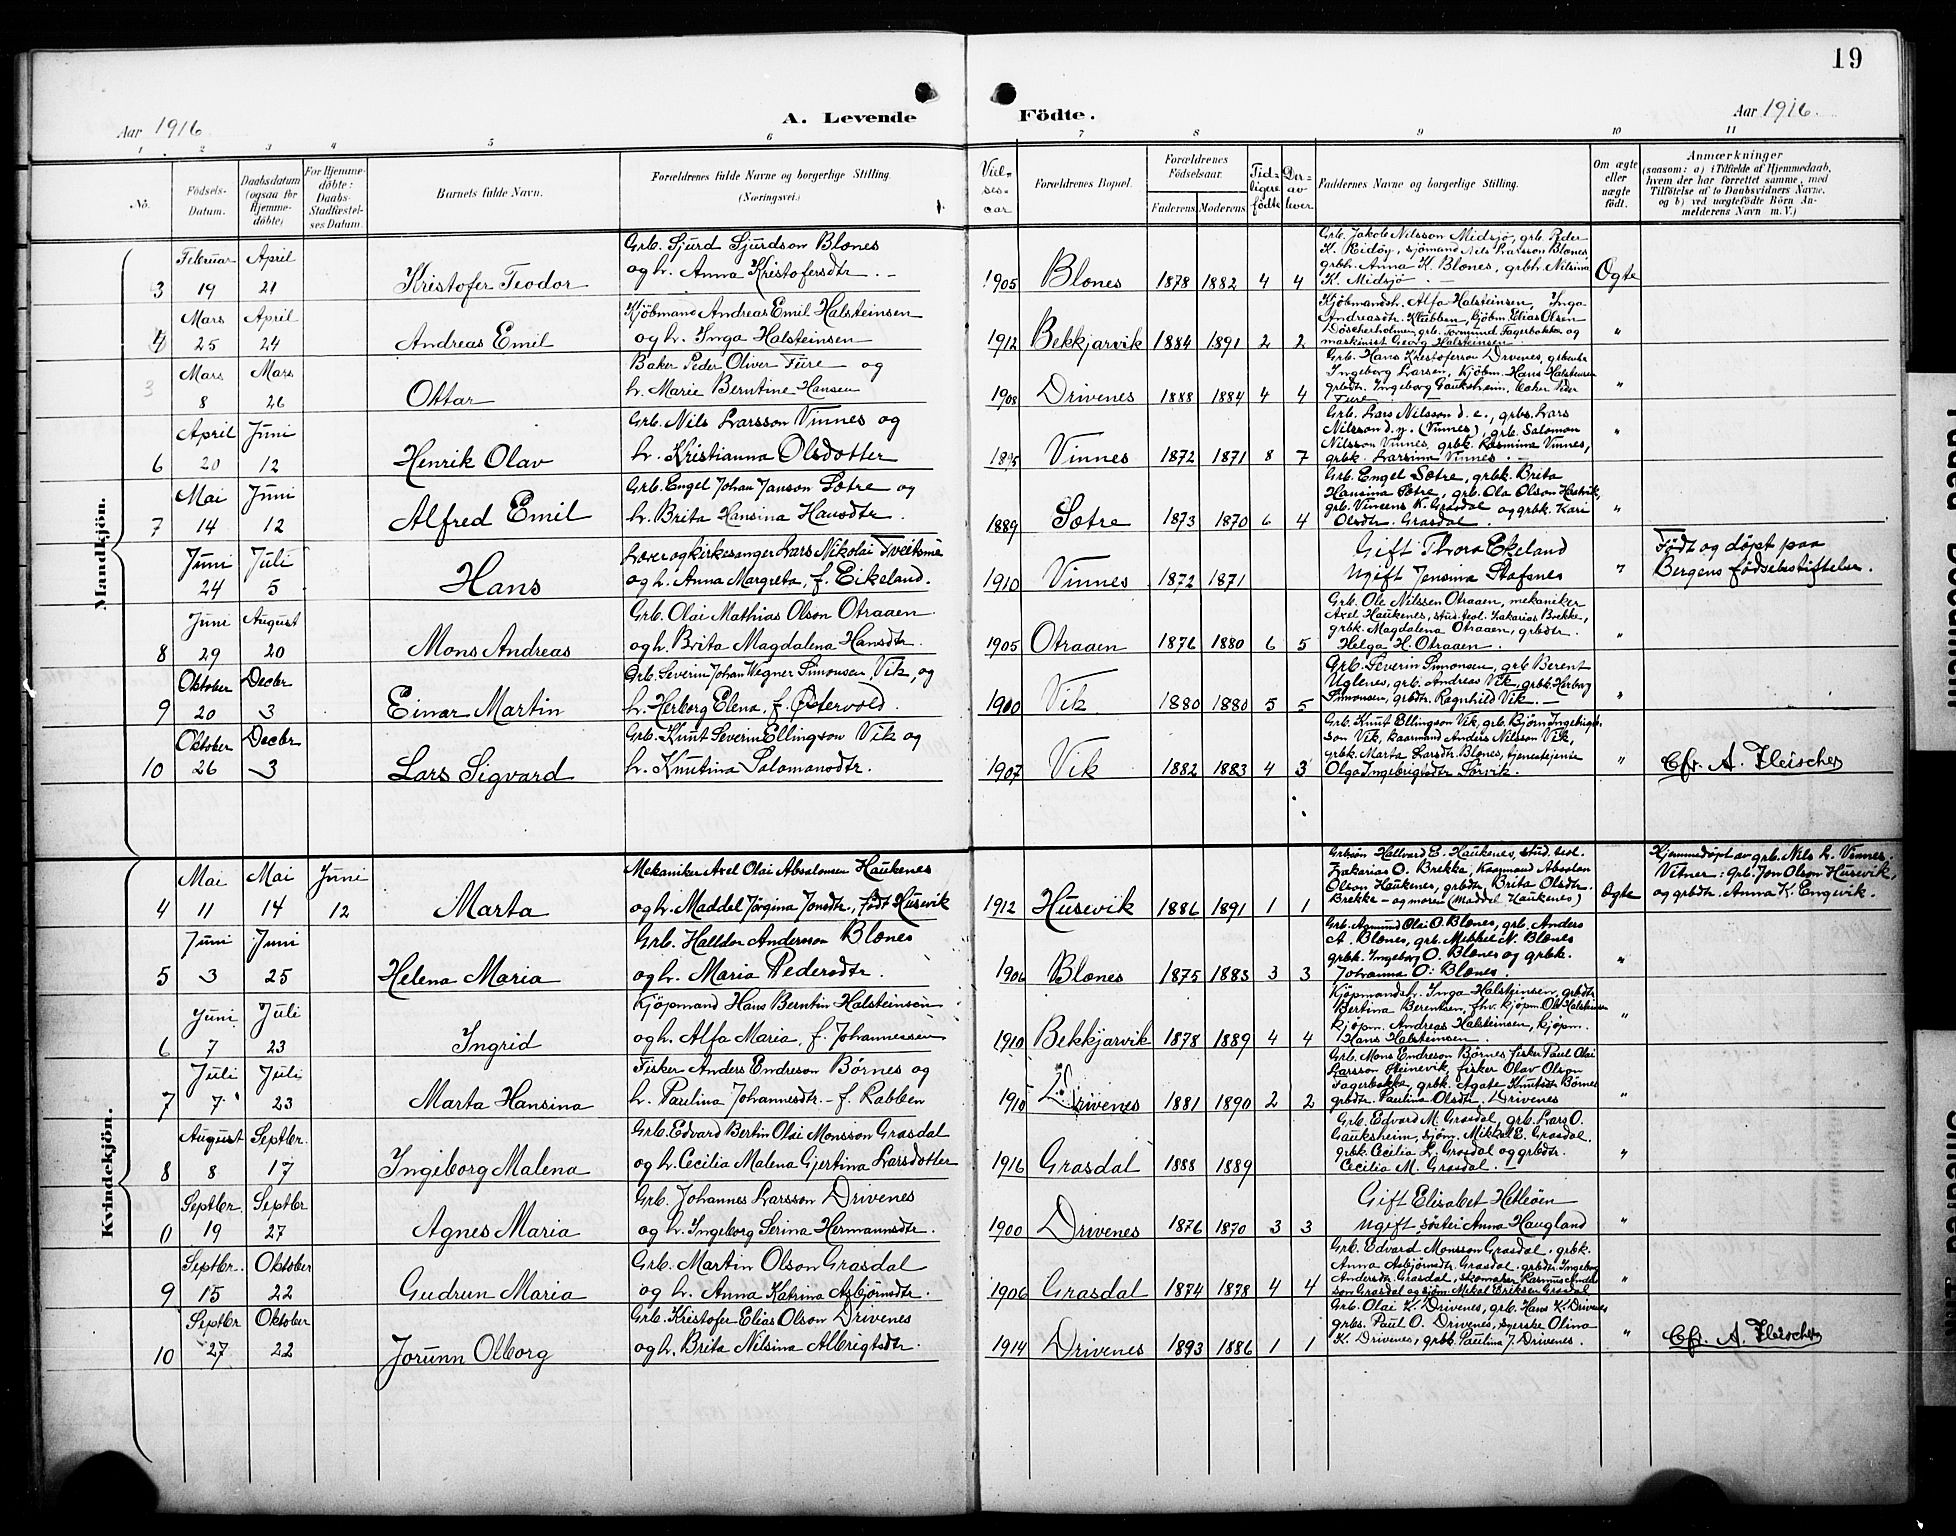 19
Aar 1916
A. Levende
Födte.
Aar 1916
1 2 3 4 5 6 7 8 9 10 11
No.
Födsels-
Datum.
Daabsdatum
(ogsaa for
Hjemme-
döbte)
For Hjemme-
döbte:
Daabs-
Stadfæstel-
ses Datum.
Barnets fulde Navn.
Forældrenes fulde Navne og borgerlige Stilling.
(Næringsvei.)
Viel-
ses-
aar
Forældrenes Bopæl.
Forældrenes
Födselsaar.
Faderens. Moderens.
Tid-
ligere
födte
Der-
av
lever
Faddernes Navne og borgerlige Stilling.
Om ægte
eller
uægte
födt.
Anmærkninger
(saasom: a) i Tilfælde af Hjemmedaab,
hvem der har forrettet samme, med
Tilföielse af to Daabsvidners Navne,
og b) ved uægtefödte Börn An-
melderens Navn m. V.)
Mandkjön.
Februar April
3 19 21
Kristofer Teodor
Grb. Sjurd Sjurdson Blænes
og h. Anna Kristofersdtr.
1905 Blænes 1878 1882 4 4
Grb. Jakob Nilsson Midsjø, grb. Peder
K. Reidøy, sjømand Nils Larsson Blænes,
grbh. Anna K. Blænes, grbh. Nilsina
K. Midsjø
Ægte
Mars April
4 25 24
Andreas Emil
Kjöbmand Andreas Emil Halsteinsen
og h. Inga Halsteinsen
1912 Bekkjarvik 1884 1891 2 2
Kjöbmandsh. Alfa Halsteinsen, Inga
Andreasdtr. Klubben, kjöbm. Elias Olsen
Döscherholmen, grb. Tormund Fagerbakken og
maskinist Georg Halsteinsen
"
Mars Mars
3 8 26
Ottar
Baker Peder Oliver Fure og
h. Marie Berntine Hansen
1908 Drivenes 1888 1884 4 4
Grb. Hans Kristoferson Drivenes, grbenke
Ingeborg Larsen, kjöbm. Hans Halsteinsen
grbdtr. Ingeborg Gauksheim, baker Peder
Fure
"
April Juni
6 20 12
Henrik Olav
Grb. Nils Larsson Vinnes og
h. Kristianna Olsdotter
1895 Vinnes 1872 1871 8 7
Grb. Lars Nilsson d. e., grbs. Lars
Nilsson d. y. (Vinnes), grb. Salomon
Nilsson Vinnes, grbk. Rasmina Vinnes,
grbk. Larsina Vinnes.
"
Mai Juni
7 14 12
Alfred Emil
Grb. Engel Johan Janson Sætre og
h. Brita Hansina Hansdtr.
1889 Sætre 1873 1870 6 4
Grb. Engel Sætre, grbk. Brita
Hansina Sætre, grb. Ola Olson Hevrøk,
grb. Vincens K. Grasdal og grbk. Kari
Olsdtr. Grasdal.
"
Juni Juli
24 5
Hans
Lærer og kirkesanger Lars Nikolai Tveitsme
og h. Anna Margreta, f. Eikeland.
1910 Vinnes 1872 1871
Gift Thora Ekeland
Ugift Jensina Stafsnes
"
Født og døpt paa
Bergens fødselsstiftelse.
Juni August
8 29 20
Mons Andreas
Grb. Olai Mathias Olson Otraaen
og h. Brita Magdalena Hansdtr.
1905 Otraaen 1876 1880 6 5
Grb. Ole Nilssen Otraaen, mekaniker
Axel Haukenes, stud. teol. Zakarias Brekke,
grbk. Magdalena Otraaen, grbdtr.
Helga H. Otraaen.
"
Oktober Decbr
9 20 3
Einar Martin
Grb. Severin Johan Wegner Simonsen, Vik, og
h. Herborg Elena, f. Østervold.
1900 Vik 1880 1880 5 5
Grb. Severin Simonsen, grb Berent
Uglenes, grb. Andreas Vik, grbk. Herborg
Simonsen, grbdtr. Ragnhild Vik.
"
Oktober Decbr
10 26 3
Lars Sigvard
Grb. Knut Severin Ellingson Vik og
h. Knutina Salomonsdtr.
1907 Vik 1882 1883 4 3
Grb. Knut Ellingson Vik, grb. Bjørn Ingebrigt-
son Vik, kaarmand Anders Nilsson Vik,
grbk. Marta Larsdtr. Blænes, tjenestejente
Olga Ingebrigtsdtr Torsvik.
"
Cfr. A. Fleischer
Kvindekjön.
Mai Mai Juni
4 11 14 12
Marta
Mekaniker Axel Olai Absalonsen Haukenes
og h. Maddel Jørgina Jonsdtr., født Husevik
1912 Husevik 1886 1891 1 1
Grbsön Hallvard E. Haukenes, stud. teol.
Zakarias O. Brekke, kaarmand Absalon
Olson Haukenes, grbdtr. Brita Olsdtr.
Brekke - og moren (Maddel Haukenes)
Ægte
Hjemmedøpt av grb. Nils L. Vinnes.
Vitner: Grb. Jon Olson Husevik,
og grbdtr. Anna K. Engevik.
Juni Juni
5 3 25
Helena Maria
Grb. Halldor Andersson Blænes
og h. Maria Pedersdtr.
1906 Blænes 1875 1883 3 3
Grb. Aamund Olai O. Blænes, grb. Anders
A. Blænes, grb. Mikkel N. Blænes
grbk. Ingeborg O. Blænes og grbk.
Johanna O. Blænes.
"
Juni Juli
6 7 23
Ingrid
Kjøpmand Hans Berntin Halsteinsen
og h. Alfa Maria, f. Johannessen
1910 Bekkjarvik 1878 1889 4 4
Kjøpmandsh. Inga Halsteinsen, grbdtr
Bertina Berentsen, fhv. kjøpm. Ole Halsteinsen
kjøpm. Andreas Halsteinsen, kjøpm.
Hans Halsteinsen.
"
Juli Juli
7 7 23
Marta Hansina
Fisker Anders Endreson Børnes og
h. Paulina Johannesdtr. - f. Rabben
1910 Drivenes 1881 1890 2 2
Grb. Mons Endreson Børnes, fisker Paul Olai
Larsson Steinevik, fisker Olav Olson
Fagerbakke, grbk. Agate Knutsdtr Børnes
grbdtr. Paulina Olsdtr. Drivenes
"
August Septbr.
8 8 17
Ingeborg Malena
Grb. Edvard Bertin Olai Monsson Grasdal
og h. Cecilia Malena Gjertina Larsdotter
1916 Grasdal 1888 1889
Grb. Edvard M. Grasdal, grb. Lars O.
Gauksheim, sjøm. Mikkel E. Grasdal.
grbk. Cecilia L. Grasdal og grbdtr.
Cecilia M. Grasdal.
"
Septbr. Septbr
0 19 27
Agnes Maria
Grb. Johannes Larsson Drivenes
og h. Ingeborg Serina Hermannsdtr.
1900 Drivenes 1876 1870 3 3
Gift Elisabet Hetleøen
Ugift søster Anna Haugland
"
Septbr. Oktober
9 15 22
Gudrun Maria
Grb. Martin Olson Grasdal
og h. Anna Katrina Asbjørnsdtr.
1906 Grasdal 1874 1878 4 4
Grb. Edvard Monsson Grasdal, grbk.
Anna Asbjørnsdtr. Grasdal, grbdtr. Ingeborg
Andersdtr. Grasdal, skomaker Rasmus Anders
son Grasdal og sjøm. Mikal Eriksen Grasdal
"
Septbr Oktober
10 27 22
Jorunn Olborg
Grb. Kristofer Elias Olson Drivenes
og h. Brita Nilsina Albrigtsdtr.
1914 Drivenes 1893 1886 1 1
Grb. Olai K. Drivenes, grb. Hans K. Drivenes
grbs. Paul O. Drivenes, syerske Olina
K. Drivenes, grbk. Paulina J. Drivenes.
"
Cfr. A. Fleischer